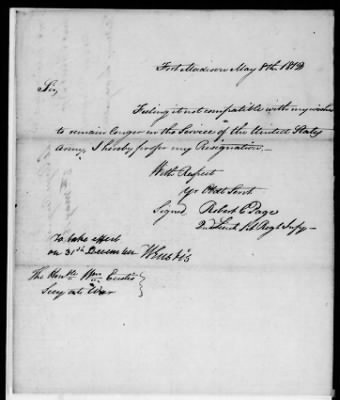 Fort Madison May 8th 1812
Sir,
Feeling it not compatible with my wishes
to remain longer in the Service of the United States
Army, I hereby proffer my Resignation.—
With Respect
Yr Obdt Servt.
Signed Robert C Page
2nd Lieut 1st Regt Infy—
To take effect
on 31st December W Eustis
The Honble. Wm. Eustis
Secy. at War